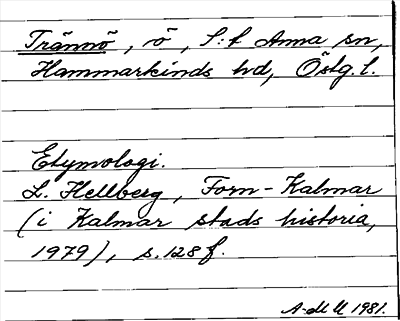 Trännö, ö, S:t Anna sn,
Hammarkinds hd, Östg. l.
Etymologi.
L. Hellberg, Forn-Kalmar
(i Kalmar stads historia,
1979), s. 128 f.
1981.